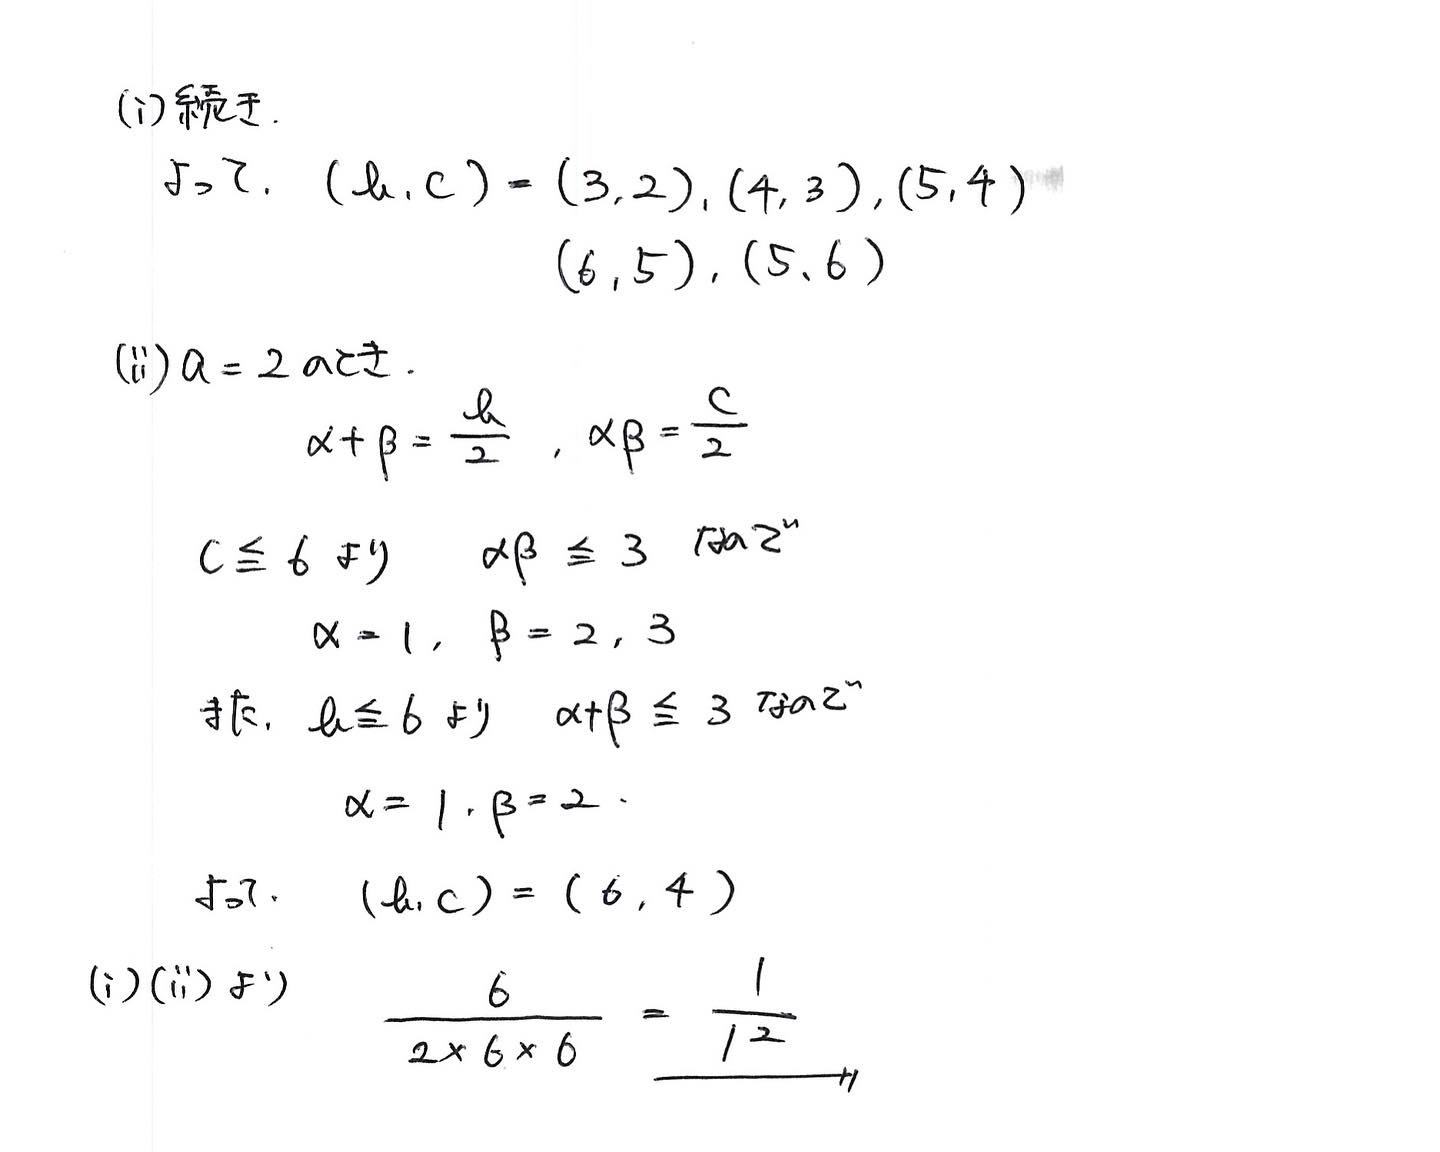 (i) 続き.
よって. (b, c) = (3, 2), (4, 3), (5, 4)
(6, 5), (5, 6)
(ii) a = 2 のとき.
α+β = b/2 , αβ = c/2
c ≦ 6 より αβ ≦ 3 なので
α = 1, β = 2, 3
また, b ≦ 6 より α+β ≦ 3 なので
α = 1, β = 2.
よって. (b, c) = (6, 4)
(i) (ii) より 6/(2×6×6) = 1/12